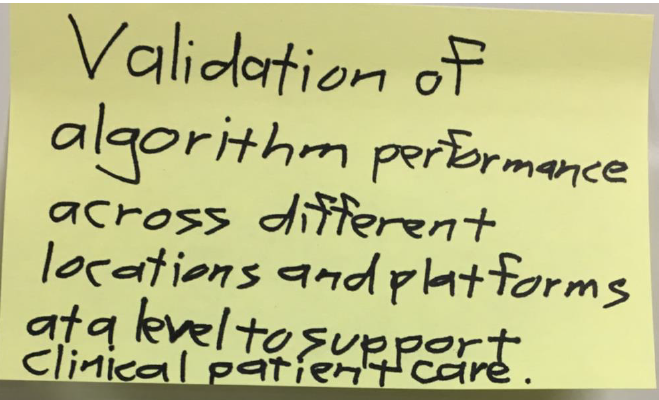 Validation of
algorithm performance
across different
locations and platforms
at a level to support
clinical patient care.